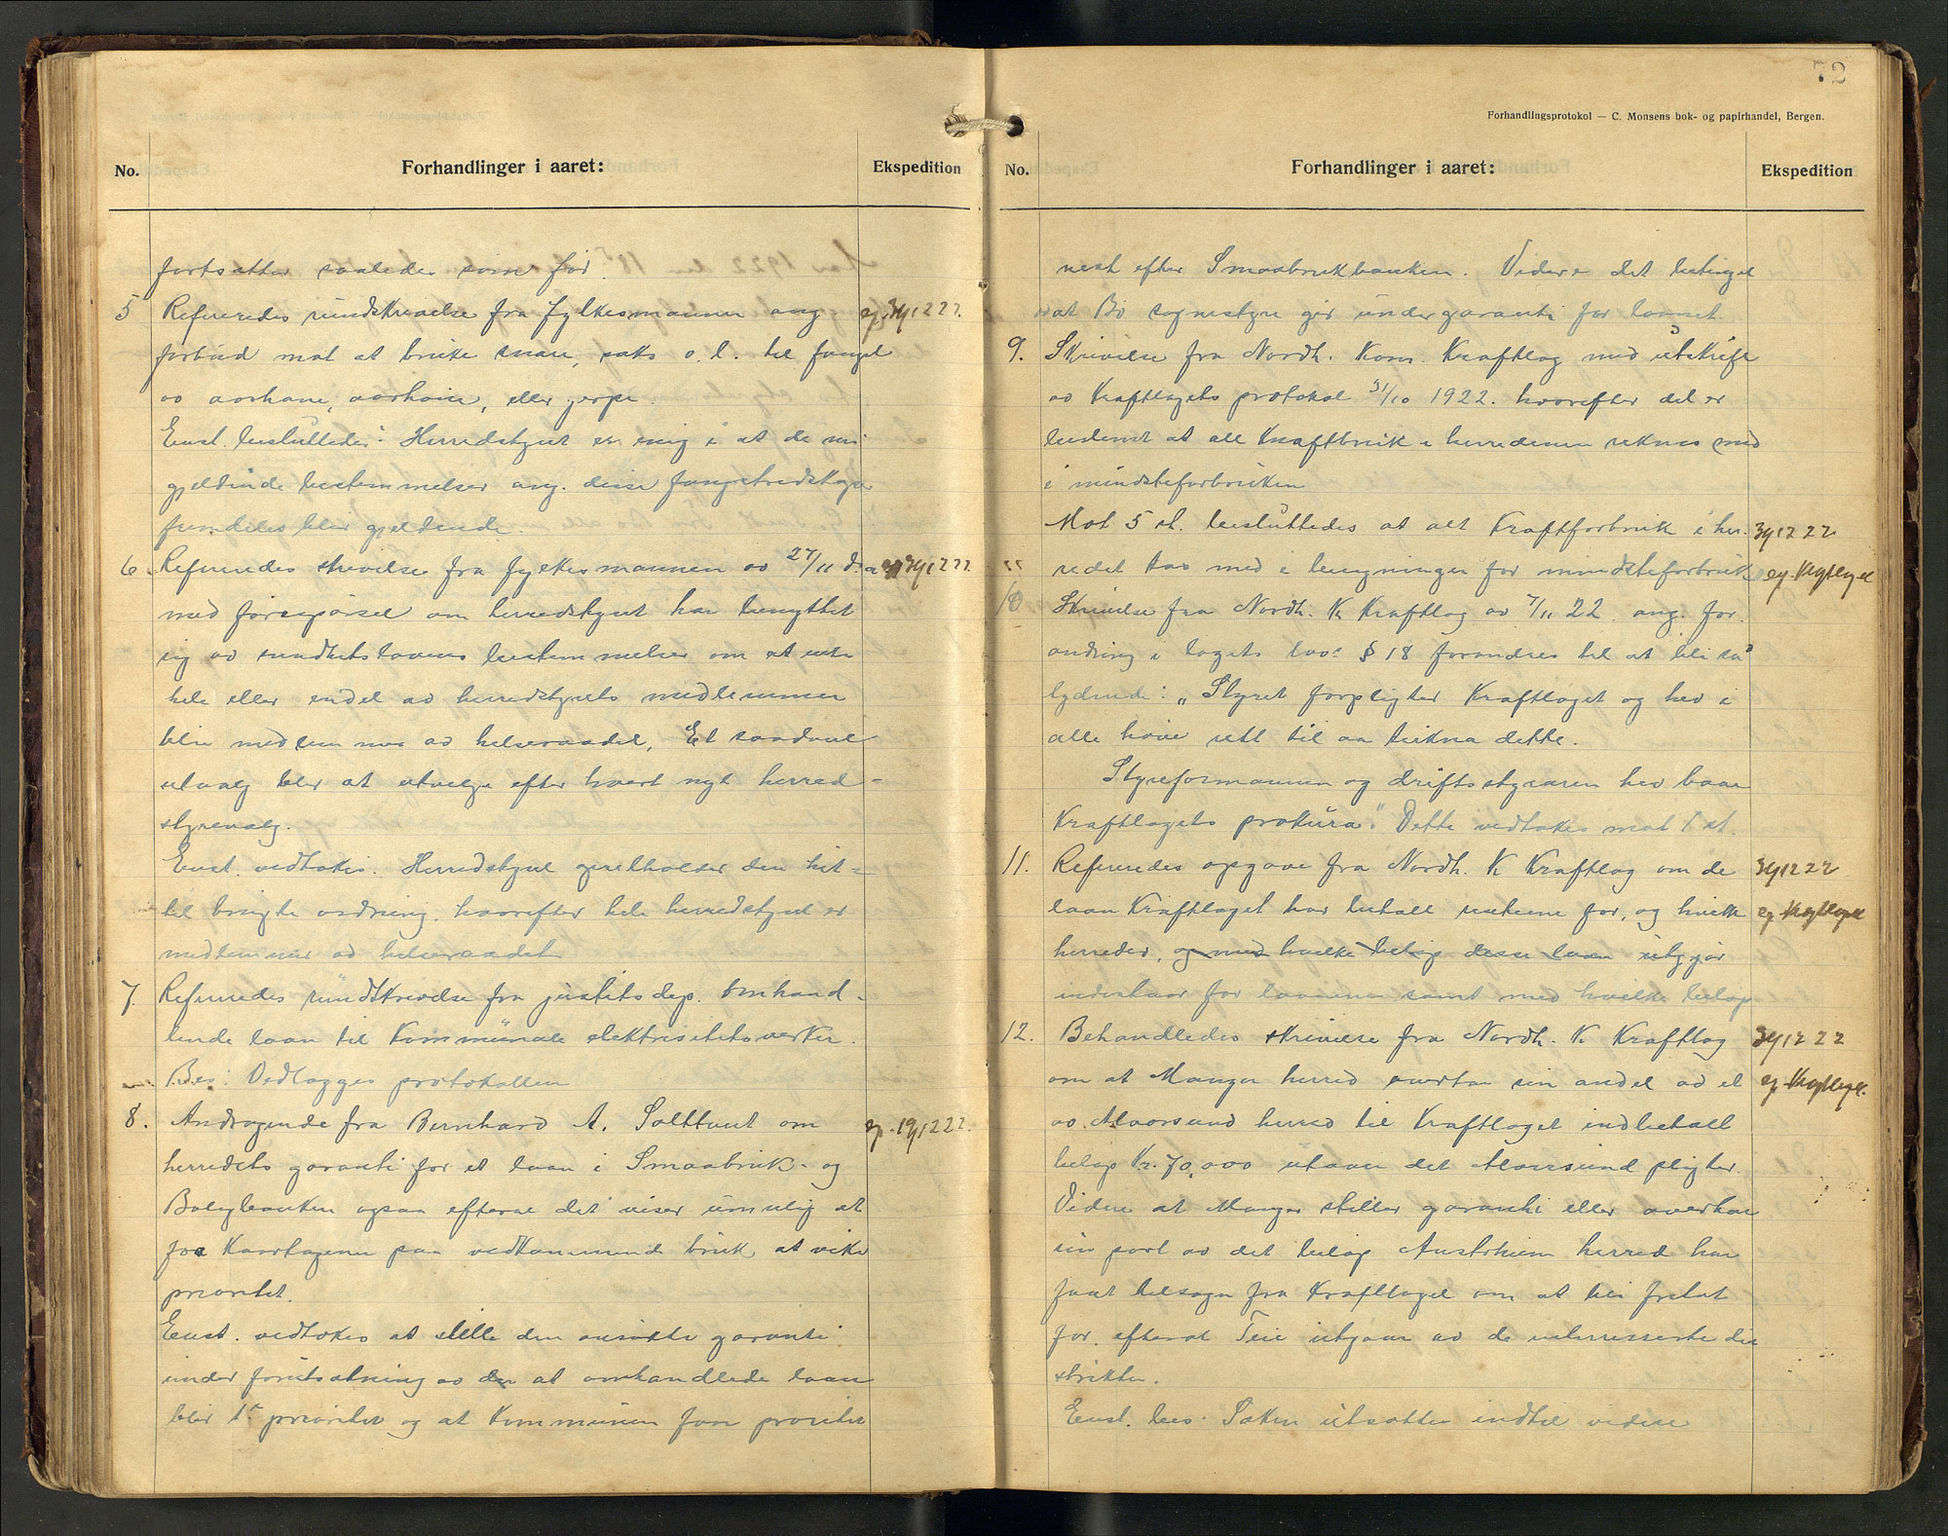 No.
Forhandlinger i aaret:
Ekspedition
fortsetter saaledes som før.
5 Refereredes rundskrivelse fra fylkesmannen ang. ep. 3/1222.
forbud mot at bruke snare, saks o. l. til fangst
av aarhane, aarhøne, eller jerpe.
Enst. besluttedes: Herredstyret er enig i at de nu
gjeldende bestemmelser ang. disse fangstredskaper
fremdeles blir gjeldende.
6. Refereredes skrivelse fra fylkesmannen av 27/11 d. a. ep 3/1222.
med førespørsel om herredstyret har benyttet
sig av sundhetslovens bestemmelser om at
hele eller endel av herredstyrets medlemmer
blir medlemmer av helseraadet. Et saadant
utvalg blir at utvelge efter hvert nyt herred-
styrevalg.
Enst. vedtokes: Herredstyret oprettholder den hit-
til brugte ordning, hvorefter hele herredstyret er
medlemmer av helseraadet
7. Refereredes rundskrivelse fra justitsdep. omhand-
lende laan til kommunale elektrisitetsverker.
Bes: Vedlægges protokollen
8. Andragende fra Bernhard A. Solttveit om ep. 19/1222.
herredets garanti for et laan i Smaabruk- og
Boligbanken ogsaa efterat det viser umulig at
faa kaartageren paa vedkommende bruk at vike
prioritet.
Enst. vedtokes at stille den ansøkte garanti
under forutsætning av at omhandlede laan
blir 1ste prioritet og at kommunen faar prioritet
72
Forhandlingsprotokol — C. Monsens bok- og papirhandel, Bergen.
No.
Forhandlinger i aaret:
Ekspedition
nest efter Smaabrukbanken. Videre det betinget
at Bø sognestyre gir undergaranti for laanet.
9. Skrivelse fra Nordh. Kom. Kraftlag med utskrift
av Kraftlagets protokol 31/10 1922. hvorefter det er
bestemt at alt kraftbruk i herrederne reknes med
i mindsteforbruken
Mot 5 st. besluttedes at alt kraftforbruk i her- 3/12 22
redet tas med i beregningen for mindsteforbruk ep. Kraftlaget
10 Skrivelse fra Nordh. K. Kraftlag av 7/11 22 ang. for-
andring i lagets lov: § 18 forandres til at bli saa
lydende: „Styret forpligter Kraftlaget og hev i
alle høve rett til aa teikna dette.
Styreformannen og driftsstyraren hev baae
Kraftlagets prokura." Dette vedtokes mot 1 st.
11. Refereredes opgave fra Nordh. K Kraftlag om de 3/12 22
laan Kraftlaget har betalt renterne for, og hvilke ep. Kraftlaget
herreder, og med hvilke beløp disse laan utgjør
indestaar for laanene samt med hvilke beløp
12. Behandledes skrivelse fra Nordh. K Kraftlag 3/12 22
om at Manger herred overtar sin andel av et ep. Kraftlaget.
av Alvorsund herred til Kraftlaget indbetalt
beløp Kr. 70,000 utover det Alvorsund pligter.
Videre at Manger stiller garanti eller overtar
sin part av det beløp Austrheim herred har
faat tilsagn fra Kraftlaget om at bli fritat
for. efterat Teie utgaar av de interesserte di-
strikter.
Enst. bes. Saken utsættes indtil videre